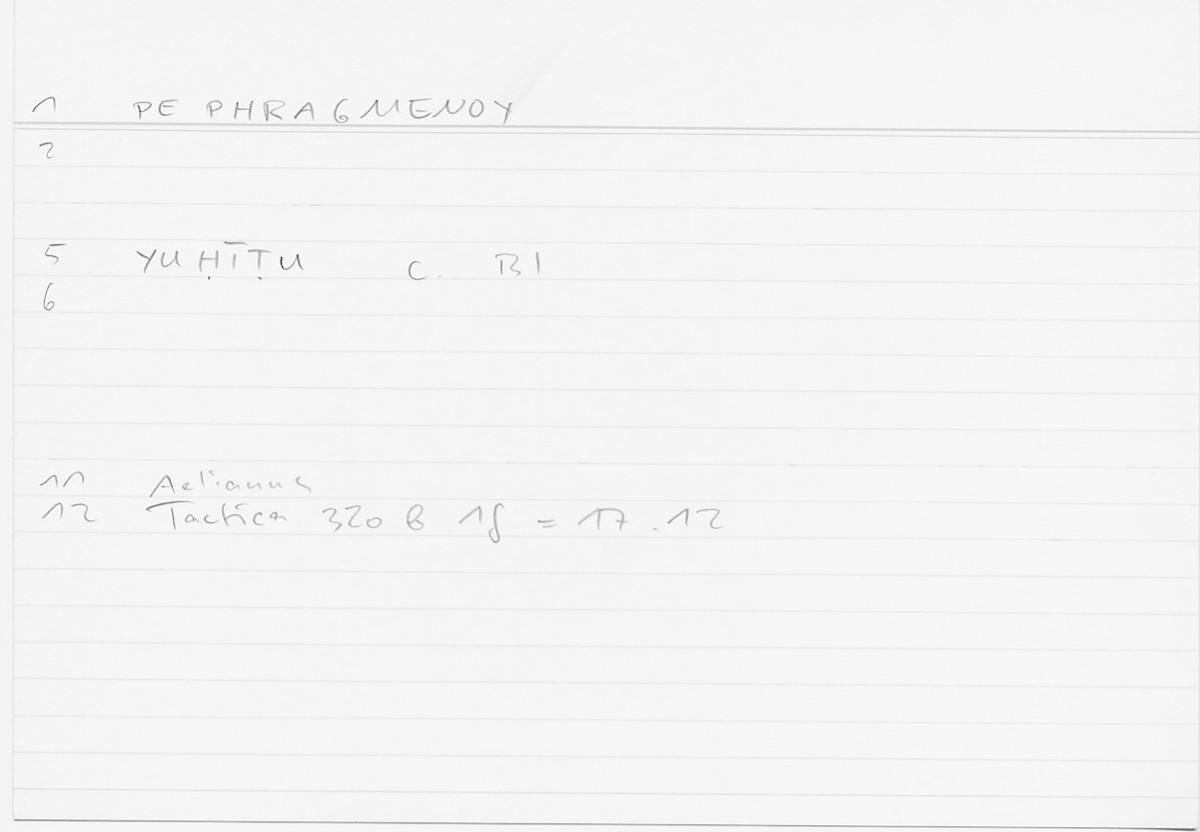 1 PE PHRAGMENOY
2
5 YUḤĪṬU C. BI
6
11 Aelianus
12 Tactica 320 B 18 = 17.12